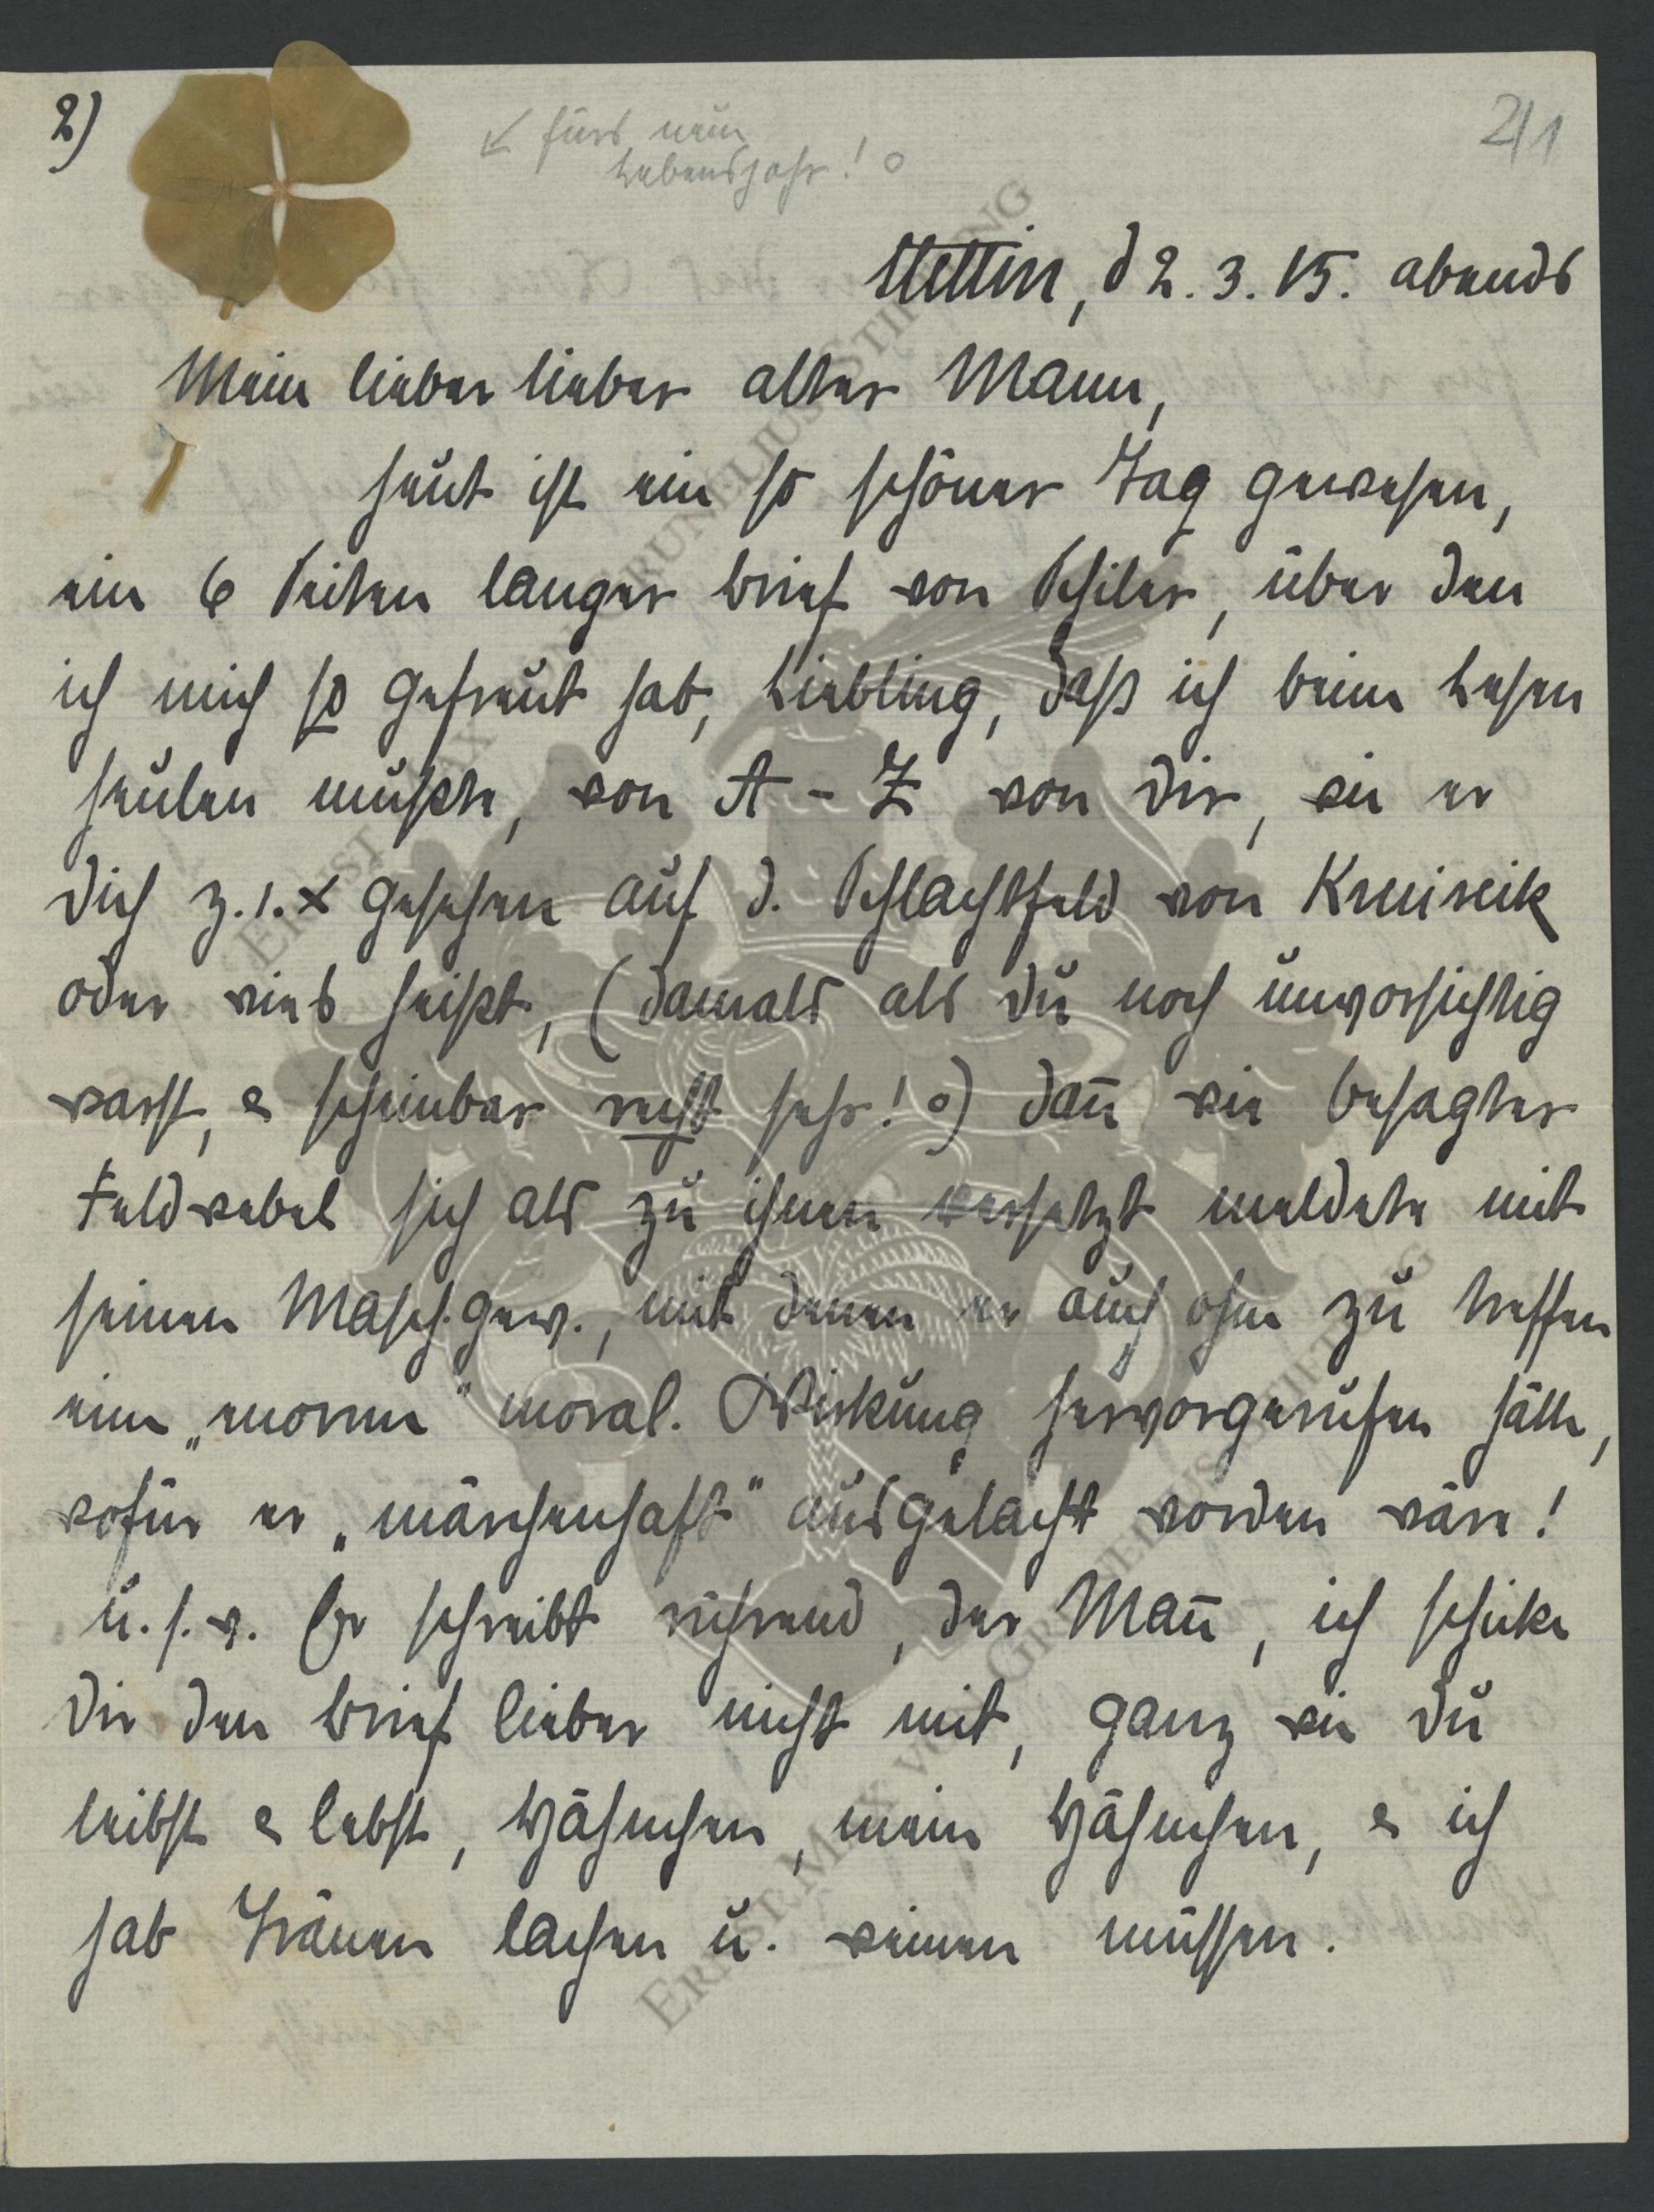 2)
↙ fürs neue
Lebensjahr! o
2/1
Stettin, d 2. 3. 15. abends
Mein lieber lieber alter Mann,
heut ist ein so schöner Tag gewesen,
ein 6 Seiten langer Brief von Schiler, über den
ich mich so gefreut hab, Liebling, daß ich beim Lesen
heulen mußte, von A - Z von Dir, wie er
Dich z. 1. x gesehen auf d. Schlachtfeld von Kruiseik
oder wies heißt, (damals als Du noch unvorsichtig
warst, & scheinbar recht sehr! o) dan̄ wie besagter
Feldwebel sich als zu ihnen versetzt meldete mit
seinen Masch.gew., mit denen er auch ohne zu treffen
eine „enorme" moral. Wirkung hervorgerufen hätte,
wofür er „märchenhaft" ausgelacht worden wäre!
u. s. w. Er schreibt rührend, der Man̄, ich schicke
Dir den Brief lieber nicht mit, ganz wie Du
leibst & lebst, mein & ich
hab Tränen lachen u. weinen müssen.
ERNST MAX VON GRUNELIUS STIFTUNG
ERNST MAX VON GRUNELIUS STIFTUNG